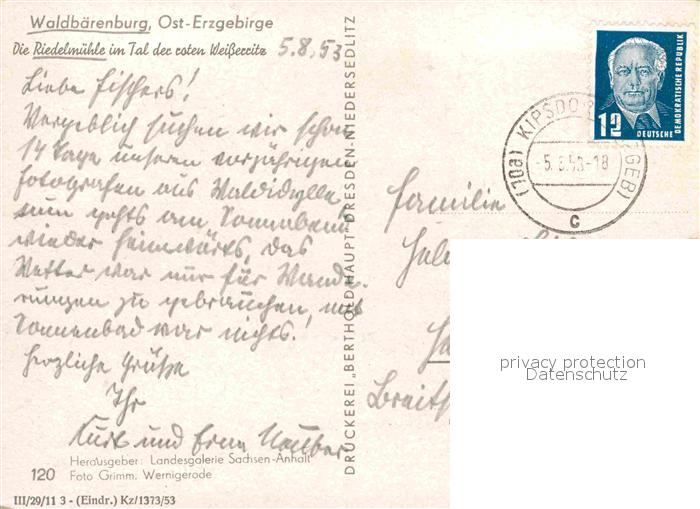 Waldbärenburg, Ost-Erzgebirge
Die Riedelmühle im Tal der roten Weißeritz 5.8.53
Liebe Fischers!
Vergeblich suchen wir schon
14 Tage unseren vorjährigen
Fotografen aus Waldidylle
nun gehts am Sonnabend
wieder heimwärts, das
Wetter war nur für Wande-
rungen zu gebrauchen, mit
Sonnenbad war nichts!
Herzliche Grüße
Ihr
Kurt und Erna
Herausgeber: Landesgalerie Sachsen-Anhalt
120 Foto Grimm, Wernigerode
III/29/11 3 - (Eindr.) Kz/1373/53
DRUCKEREI „BERTHOLD HAUPT" DRESDEN-NIEDERSEDLITZ
12 DEUTSCHE
DEMOKRATISCHE REPUBLIK
(10a) KIPSDO GEB)
-5.8.53-18
c
Familie
privacy protection
Datenschutz